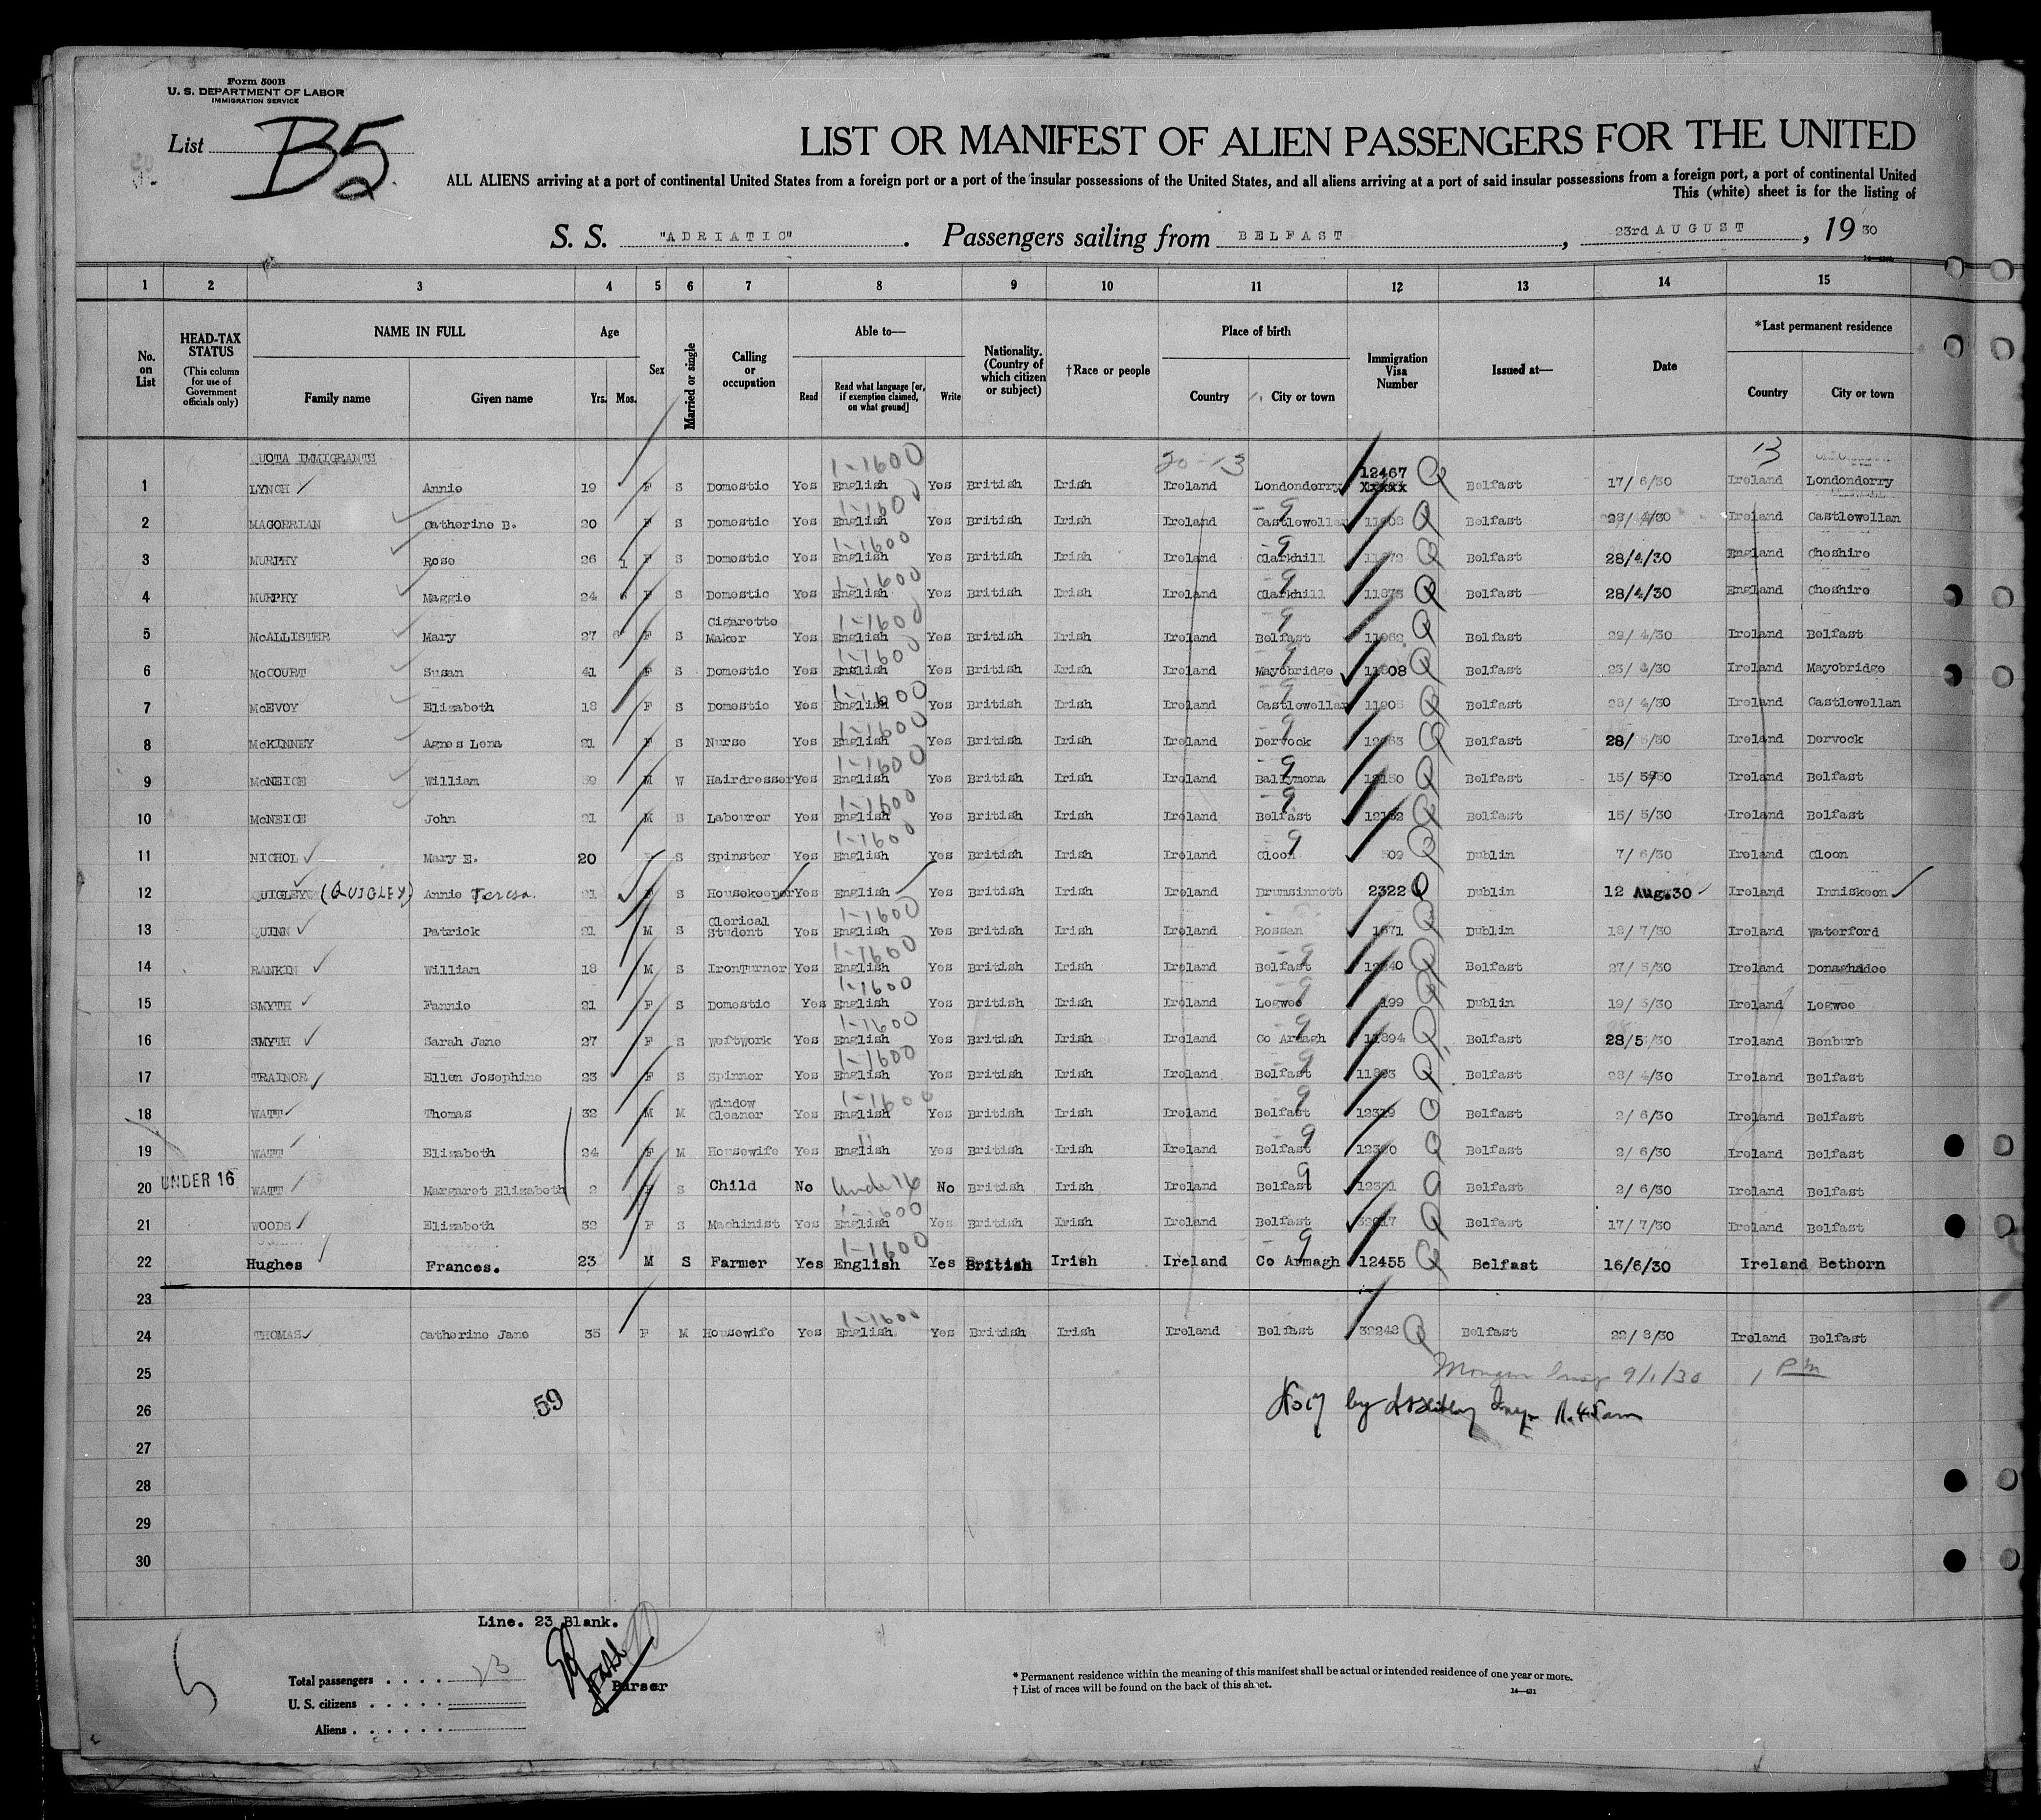 Form 500B
U. S. DEPARTMENT OF LABOR
IMMIGRATION SERVICE
List B5
LIST OR MANIFEST OF ALIEN PASSENGERS FOR THE UNITED
ALL ALIENS arriving at a port of continental United States from a foreign port or a port of the insular possessions of the United States, and all aliens arriving at a port of said insular possessions from a foreign port, a port of continental United
This (white) sheet is for the listing of
S. S. "ADRIATIC". Passengers sailing from BELFAST, 23rd AUGUST, 19 30
1 2 3 4 5 6 7 8 9 10 11 12 13 14 15
No. on List
HEAD-TAX STATUS (This column for use of Government officials only)
NAME IN FULL
Family name Given name
Age
Yrs. Mos.
Sex
Married or single
Calling or occupation
Able to—
Read Read what language [or, if exemption claimed, on what ground] Write
Nationality. (Country of which citizen or subject)
†Race or people
Place of birth
Country City or town
Immigration Visa Number
Issued at—
Date
*Last permanent residence
Country City or town
QUOTA IMMIGRANTS 1-1600 20-13 13
12467
1 LYNCH Annie 19 F S Domestic Yes English Yes British Irish Ireland Londonderry XXXXX Q Belfast 17/6/30 Ireland Londonderry
1-1600
2 MAGORRIAN Catherine B. 20 F S Domestic Yes English Yes British Irish Ireland Castlewellan Q Belfast Ireland Castlewellan
1-1600
3 MURPHY Rose 26 1 F S Domestic Yes English Yes British Irish Ireland Clarkhill Q Belfast 28/4/30 England Cheshire
1-1600
4 MURPHY Maggie 24 F S Domestic Yes English Yes British Irish Ireland Clarkhill Q Belfast 28/4/30 England Cheshire
1-1600
5 McALLISTER Mary 27 F S Cigarette Maker Yes English Yes British Irish Ireland Belfast Q Belfast 29/4/30 Ireland Belfast
1-1600
6 McCOURT Susan 41 F S Domestic Yes English Yes British Irish Ireland Mayobridge Q Belfast Ireland Mayobridge
1-1600
7 McEVOY Elizabeth 18 F S Domestic Yes English Yes British Irish Ireland Castlewellan Q Belfast Ireland Castlewellan
1-1600
8 McKINNEY Agnes Lena 21 F S Nurse Yes English Yes British Irish Ireland Dervock Q Belfast Ireland Dervock
1-1600
9 McNEICE William M W Hairdresser Yes English Yes British Irish Ireland Ballymena Q Belfast Ireland Belfast
1-1600
10 McNEICE John 21 M S Labourer Yes English Yes British Irish Ireland Belfast Q Belfast 15/5/30 Ireland Belfast
1-1600
11 NICHOL Mary E. 20 S Spinster Yes English Yes British Irish Ireland Cloon Q Dublin 7/6/30 Ireland Cloon
12 QUIGLEY (QUIGLEY) Annie Teresa. 21 F S Housekeeper Yes English Yes British Irish Ireland Drumsinnott 2322 Q Dublin 12 Aug.30 Ireland Inniskeen
1-1600
13 QUINN Patrick 21 M S Clerical Student Yes English Yes British Irish Ireland Rossan Q Dublin 18/7/30 Ireland Waterford
1-1600
14 RANKIN William 18 M S IronTurner Yes English Yes British Irish Ireland Belfast Q Belfast 27/5/30 Ireland Donaghadee
1-1600
15 SMYTH Fannie 21 F S Domestic Yes English Yes British Irish Ireland Legwee Q Dublin Ireland Legwee
1-1600
16 SMYTH Sarah Jane 27 F S Weftwork Yes English Yes British Irish Ireland Co Armagh Q Belfast 28/5/30 Ireland Benburb
1-1600
17 TRAINOR Ellen Josephine 23 F S Spinner Yes English Yes British Irish Ireland Belfast Q Belfast Ireland Belfast
1-1600
18 WATT Thomas 32 M M Window Cleaner Yes English Yes British Irish Ireland Belfast 12319 Q Belfast 2/6/30 Ireland Belfast
19 WATT Elizabeth 24 F M Housewife Yes English Yes British Irish Ireland Belfast 12320 Q Belfast 2/6/30 Ireland Belfast
20 UNDER 16 WATT Margaret Elizabeth 2 F S Child No Under 16 No British Irish Ireland Belfast 12321 Q Belfast 2/6/30 Ireland Belfast
1-1600
21 WOODS Elizabeth 32 F S Machinist Yes English Yes British Irish Ireland Belfast Q Belfast 17/7/30 Ireland Belfast
1-1600
22 Hughes Frances. 23 M S Farmer Yes English Yes British Irish Ireland Co Armagh 12455 Q Belfast 16/6/30 Ireland Bethorn
23
1-1600
24 THOMAS Catherine Jane 35 F M Housewife Yes English Yes British Irish Ireland Belfast 32248 Q Belfast 22/8/30 Ireland Belfast
25 9/1/30 1 PM
26 59 by 11.45am
27
28
29
30
Line. 23 Blank.
5
Total passengers 23
Purser
U. S. citizens
Aliens
* Permanent residence within the meaning of this manifest shall be actual or intended residence of one year or more.
† List of races will be found on the back of this sheet.
14—431